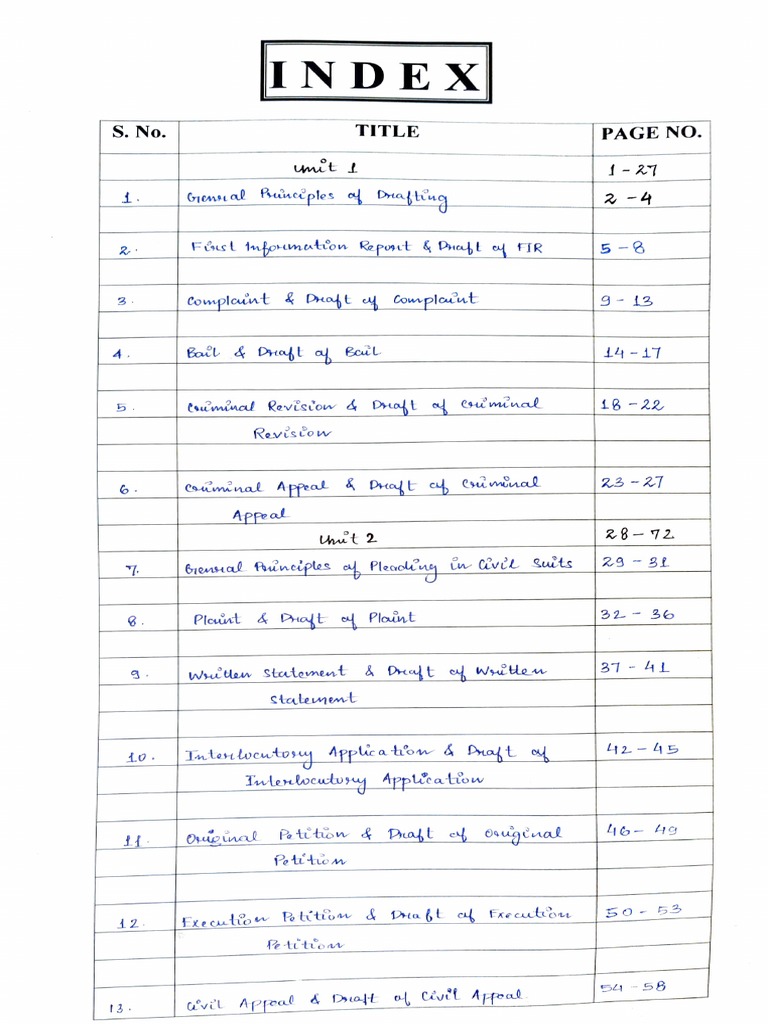 INDEX
S. No. TITLE PAGE NO.
Unit 1 1 - 27
1. General Principles of Drafting 2 - 4
2. First Information Report & Draft of FIR 5 - 8
3. Complaint & Draft of Complaint 9 - 13
4. Bail & Draft of Bail 14 - 17
5. Criminal Revision & Draft of Criminal 18 - 22
Revision
6. Criminal Appeal & Draft of Criminal 23 - 27
Appeal
Unit 2 28 - 72
7. General Principles of Pleading in Civil Suits 29 - 31
8. Plaint & Draft of Plaint 32 - 36
9. Written Statement & Draft of Written 37 - 41
Statement
10. Interlocutory Application & Draft of 42 - 45
Interlocutory Application
11. Original Petition & Draft of Original 46 - 49
Petition
12. Execution Petition & Draft of Execution 50 - 53
Petition
13. Civil Appeal & Draft of Civil Appeal 54 - 58